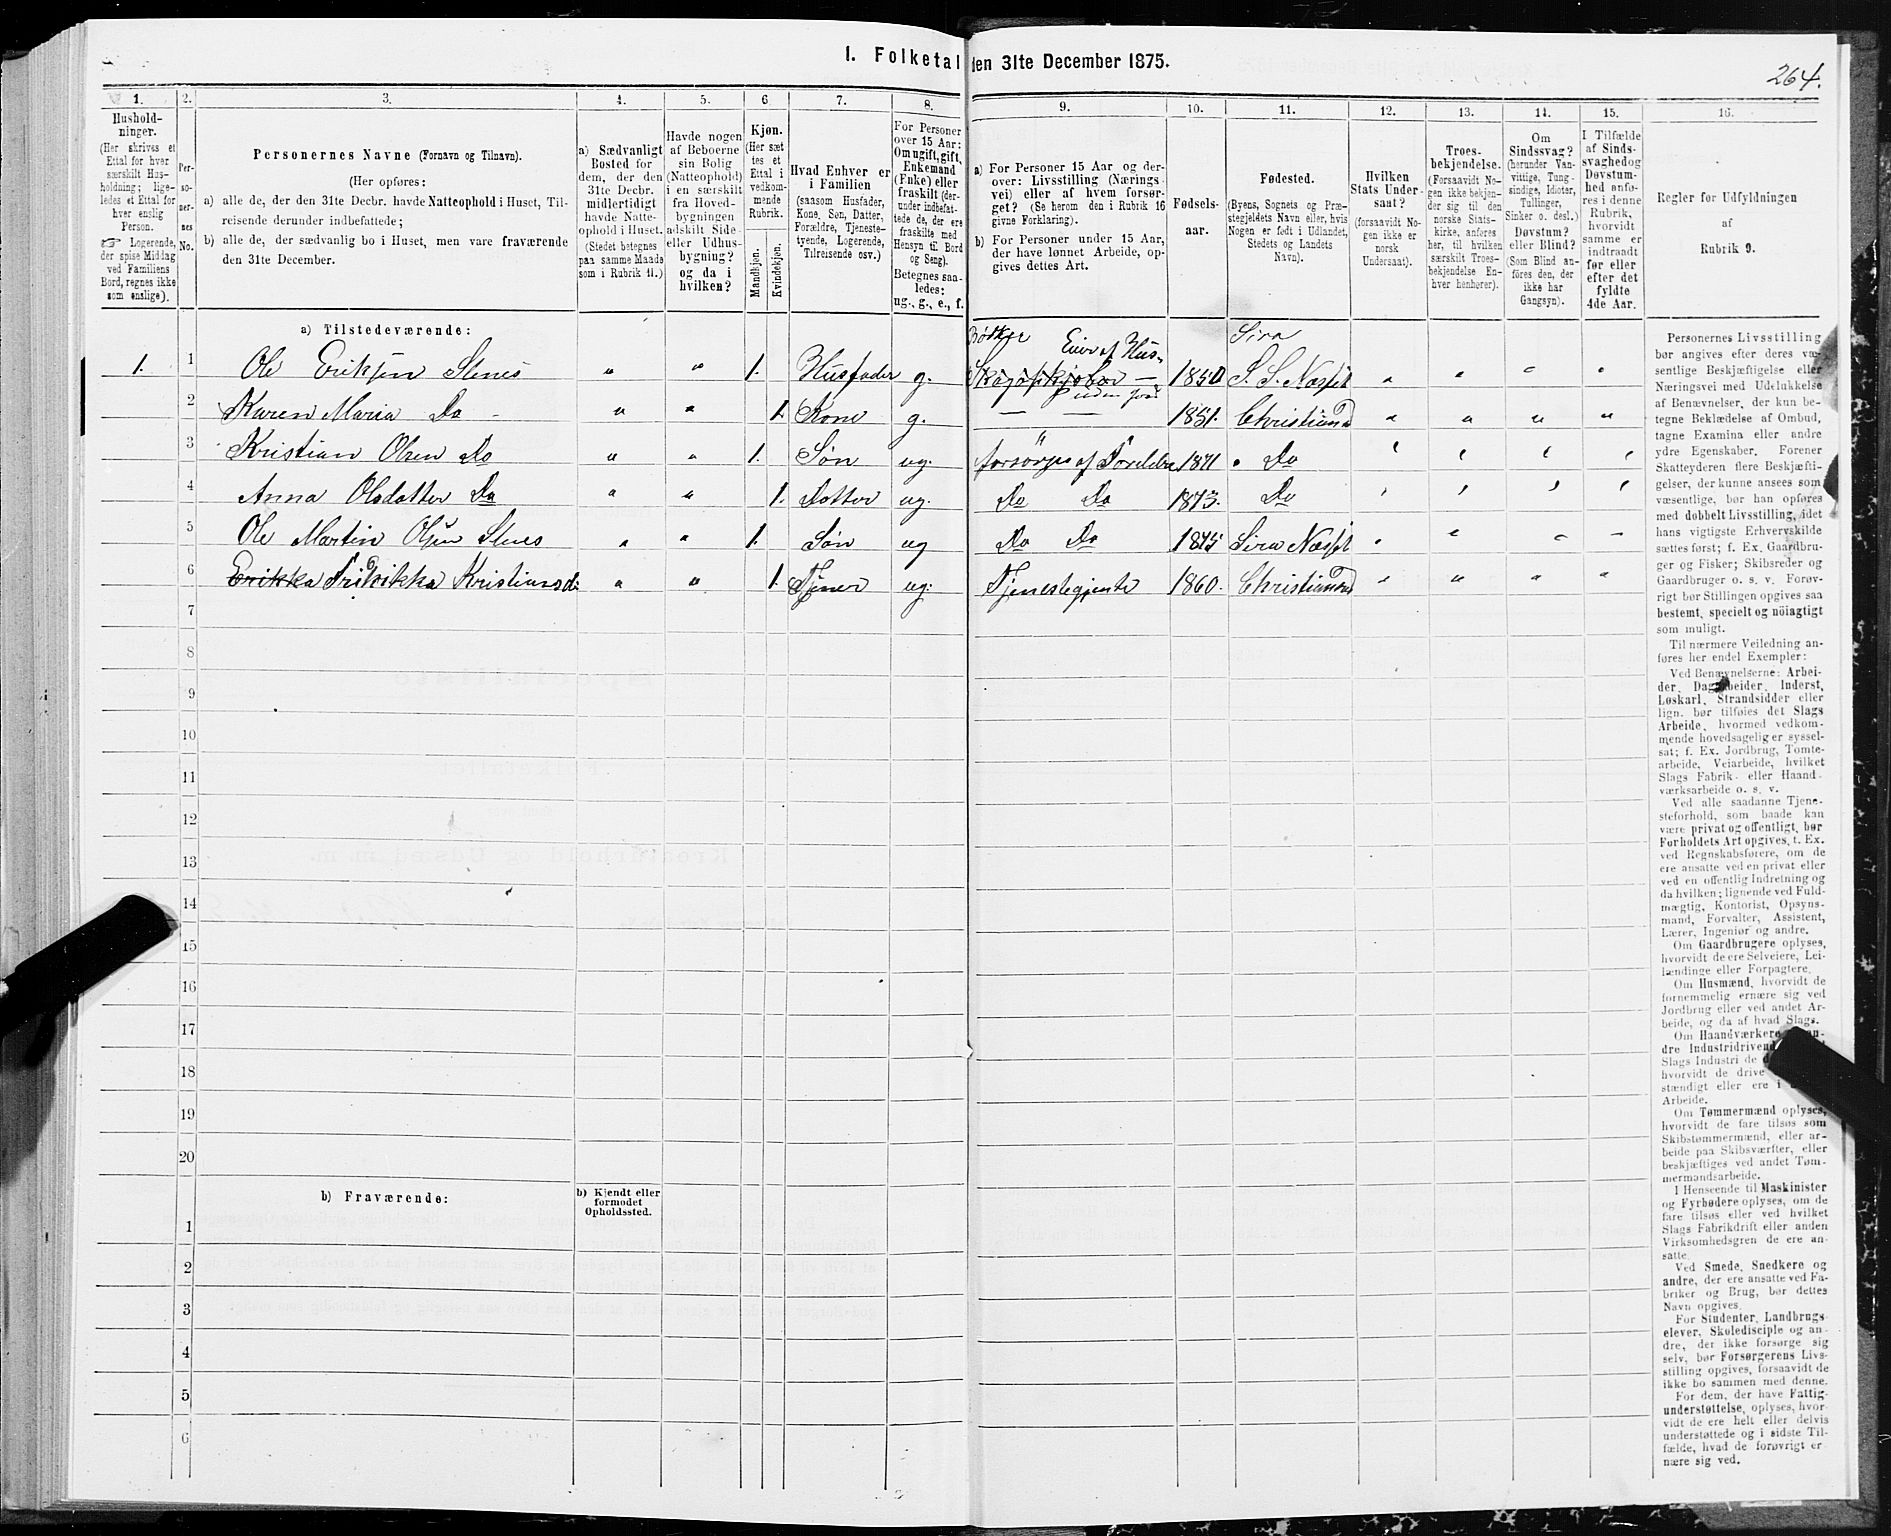 1. Folketal den 31te December 1875.
264.
1.
Hushold-
ninger.
(Her skrives et
Ettal for hver
særskilt Hus-
holdning; lige-
ledes et Ettal for
hver enslig
Person.
☞ Logerende,
der spise Middag
ved Familiens
Bord, regnes ikke
som enslige).
2.
Per-
so-
ner-
nes
No.
3.
Personernes Navne (Fornavn og Tilnavn).
(Her opføres:
a) alle de, der den 31te Decbr. havde Natteophold i Huset, Til-
reisende derunder indbefattede;
b) alle de, der sædvanlig bo i Huset, men vare fraværende
den 31te December.
4.
a) Sædvanligt
Bosted for
dem, der den
31te Decbr.
midlertidigt
havde Natte-
ophold i Huset.
(Stedet betegnes
paa samme Maade
som i Rubrik 11.)
5.
Havde nogen
af Beboerne
sin Bolig
(Natteophold)
i en særskilt
fra Hoved-
bygningen
adskilt Side-
eller Udhus-
bygning?
og da i
hvilken?
6.
Kjøn.
(Her sæt-
tes et
Ettal i
vedkom-
mende
Rubrik.
Mandkjøn.
Kvindekjøn.
7.
Hvad Enhver er
i Familien
(saasom Husfader,
Kone, Søn, Datter,
Forældre, Tjeneste-
tyende, Logerende,
Tilreisende osv.)
8.
For Personer
over 15 Aar:
Om ugift, gift,
Enkemand
(Enke) eller
fraskilt (der-
under indbefat-
tede de, der ere
fraskilte med
Hensyn til Bord
og Seng).
Betegnes saa-
ledes:
ug., g., e., f.
9.
a) For Personer 15 Aar og der-
over: Livsstilling (Nærings-
vei) eller af hvem forsør-
get? (Se herom den i Rubrik 16
givne Forklaring).
b) For Personer under 15 Aar,
der have lønnet Arbeide, op-
gives dettes Art.
10.
Fødsels-
aar.
11.
Fødested.
(Byens, Sognets og Præ-
stegjeldets Navn eller, hvis
Nogen er født i Udlandet,
Stedets og Landets
Navn).
12.
Hvilken
Stats Under-
saat?
(forsaavidt No-
gen ikke er
norsk
Undersaat).
13.
Troes-
bekjendelse.
(Forsaavidt No-
gen ikke bekjen-
der sig til den
norske Stats-
kirke, anføres
her, til hvilken
særskilt Troes-
bekjendelse En-
hver henhører).
14.
Om
Sindssvag?
(herunder Van-
vittige, Tung-
sindige, Idioter,
Tullinger,
Sinker o. desl.)
Døvstum?
eller Blind?
(Som Blind an-
føres den, der
ikke har
Gangsyn).
15.
I Tilfælde
af Sinds-
svaghed og
Døvstum-
hed anfø-
res i denne
Rubrik,
hvorvidt
samme er
indtraadt
før eller
efter det
fyldte
4de Aar.
16.
Regler for Udfyldningen
af
Rubrik 9.
a) Tilstedeværende:
Bødker Eier af Hus Sira
1. 1 Ole Eriksen Stenes " " 1. Husfader g. uden Jord 1850 S. S. Næsset " " " "
2 Karen Maria Do " " 1. Kone g. — — 1851. Christiansd " " " "
3 Kristian Olsen Do " " 1. Søn ug. forsørges af Foreldre 1871 Do
4 Anna Olsdatter Do " " 1. Datter ug. Do Do 1873. Do
5 Ole Martin Olsen Stenes " " 1. Søn ug Do Do 1875 Sira Næsset
6 Erikka Frikikka Kristiansd: " " 1. Tjener ug. Tjenestegjente 1860. Christiansd " " " "
7
8
9
10
11
12
13
14
15
16
17
18
19
20
b) Fraværende:
b) Kjendt eller
formodet
Opholdssted.
1
2
3
4
5
6
Personernes Livsstilling
bør angives efter deres væ-
sentlige Beskjæftigelse eller
Næringsvei med Udelukkelse
af Benævnelser, der kun be-
tegne Beklædelse af Ombud,
tagne Examina eller andre
ydre Egenskaber. Forener
Skatteyderen flere Beskjæfti-
gelser, der kunne ansees som
væsentlige, bør han opføres
med dobbelt Livsstilling, idet
hans vigtigste Erhvervskilde
sættes først; f. Ex. Gaardbru-
ger og Fisker; Skibsreder og
Gaardbruger o. s. v. Forøv-
rigt bør Stillingen opgives saa
bestemt, specielt og nöiagtigt
som muligt.
Til nærmere Veiledning an-
føres her endel Exempler:
Ved Benævnelserne: Arbei-
der, Dagarbeider, Inderst,
Løskarl, Strandsidder eller
lign. bør tilføies det Slags
Arbeide, hvormed vedkom-
mende hovedsagelig er syssel-
sat; f. Ex. Jordbrug, Tomte-
arbeide, Veiarbeide, hvilket
Slags Fabrik- eller Haand-
værksarbeide o. s. v.
Ved alle saadanne Tjene-
steforhold, som baade kan
være privat og offentligt, bør
Forholdets Art opgives, t. Ex.
ved Regnskabsførere, om de
ere ansatte ved en privat eller
ved en offentlig Indretning og
da hvilken; lignende ved Fuld-
mægtig, Kontorist, Opsyns-
mand, Forvalter, Assistent,
Lærer, Ingeniør og andre.
Om Gaardbrugere oplyses,
hvorvidt de ere Selveiere, Lei-
lændinge eller Forpagtere.
Om Husmænd, hvorvidt de
fornemmelig ernære sig ved
Jordbrug eller ved andet Ar-
beide, og da af hvad Slags.
Om Haandværkere
dre Industridrivend
Slags Industri de
hvorvidt de drive
stændigt eller ere i
Arbeide.
Om Tømmermænd oplyses,
hvorvidt de fare tilsøs som
Skibstømmermænd, eller ar-
beide paa Skibsværfter, eller
beskjæftiges ved andet Tøm-
mermandsarbeide.
I Henseende til Maskinister
og Fyrbødere oplyses, om de
fare tilsøs eller ved hvilket
Slags Fabrikdrift eller anden
Virksomhedsgren de ere an-
satte.
Ved Smede, Snedkere og
andre, der ere ansatte ved Fa-
briker og Brug, bør dettes
Navn opgives.
For Studenter, Landbrugs-
elever, Skoledisciple og an-
dre, der ikke forsørge sig
selv, bør Forsørgerens Livs-
stilling opgives, forsaavidt de
ikke bo sammen med denne.
For dem, der have Fattig-
understøttelse, oplyses, hvor-
vidt de ere helt eller delvis
understøttede og i sidste Til-
fælde, hvad de forøvrigt er-
nære sig ved.